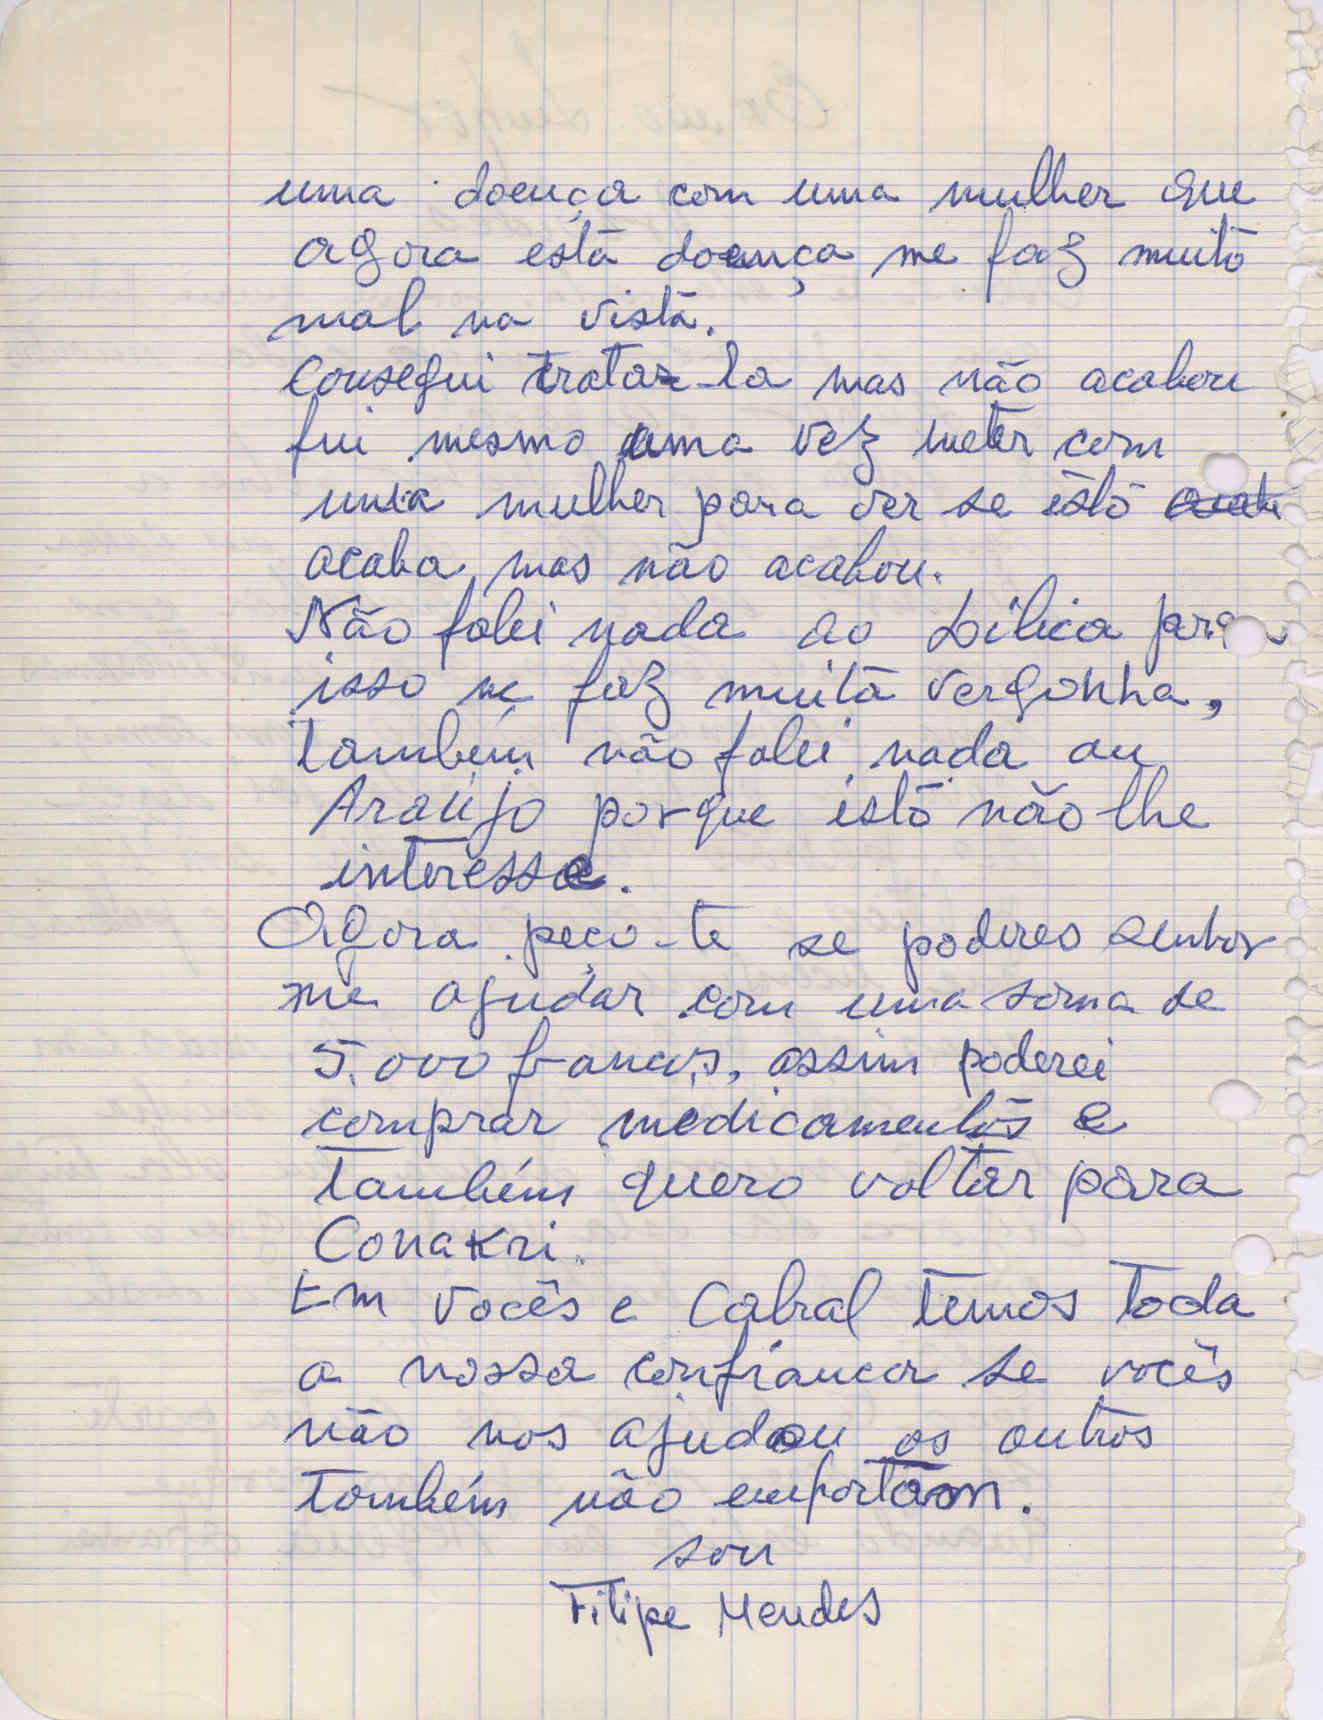 uma doença com uma mulher que
agora está doença me faz muito
mal na vista.
Consegui tratar-la mas não acabou
fui mesmo uma vez meter com
uma mulher para ver se isto
acaba, mas não acabou.
Não falei nada ao Lilica para
isso me faz muita vergonha,
também não falei nada au
Araújo porque isto não lhe
interessa.
Agora peço-te se poderes senhor
me ajudar com uma soma de
5.000 francos, assim poderei
comprar medicamentos e
também quero voltar para
Conakri.
Em vocês e Cabral temos toda
a nossa confianca se vocês
não nos ajudou os outros
também não emportam.
sou
Filipe Mendes